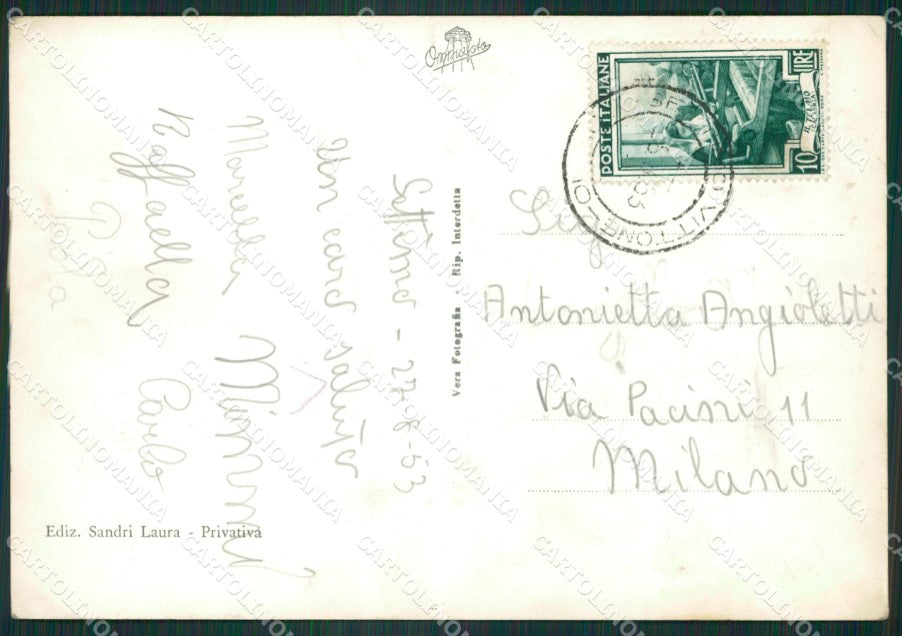 Omniafoto
POSTE ITALIANE
LIRE
10
IL TELAIO
VITTONE
Settimo - 27-8-53
Un caro saluto
Marcella
Raffaella
Paola
Carlo
Vera Fotografia - Rip. Interdetta
Sig
Antonietta Angioletti
Via Pacini 11
Milano
Ediz. Sandri Laura - Privativa
CARTOLINOMANIA